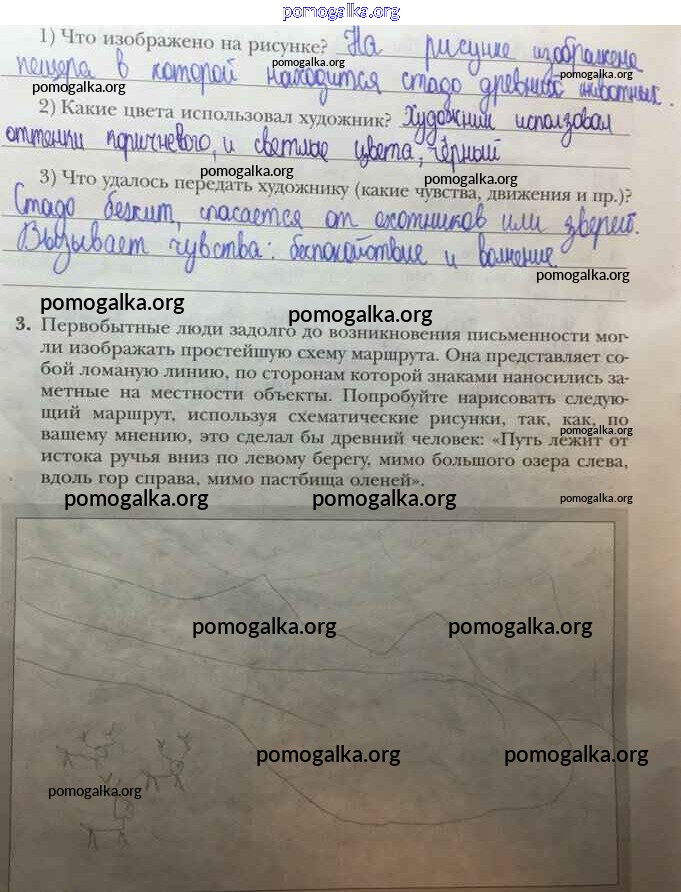 pomogalka.org
1) Что изображено на рисунке? На рисунке изображена
pomogalka.org pomogalka.org
пещера в которой находится стадо древних животных.
pomogalka.org
2) Какие цвета использовал художник? Художник исползовал
pomogalka.org
оттенки коричневого, и светлые цвета, чёрный
pomogalka.org pomogalka.org
3) Что удалось передать художнику (какие чувства, движения и пр.)?
Стадо бежит, спасается от охотников или зверей.
Вызывает чувства: беспокойствие и волнение
pomogalka.org
pomogalka.org pomogalka.org
3. Первобытные люди задолго до возникновения письменности мог-
ли изображать простейшую схему маршрута. Она представляет со-
бой ломаную линию, по сторонам которой знаками наносились за-
метные на местности объекты. Попробуйте нарисовать следую-
щий маршрут, используя схематические рисунки, так, как, по
pomogalka.org
вашему мнению, это сделал бы древний человек: «Путь лежит от
истока ручья вниз по левому берегу, мимо большого озера слева,
вдоль гор справа, мимо пастбища оленей».
pomogalka.org pomogalka.org pomogalka.org
pomogalka.org pomogalka.org
pomogalka.org pomogalka.org
pomogalka.org